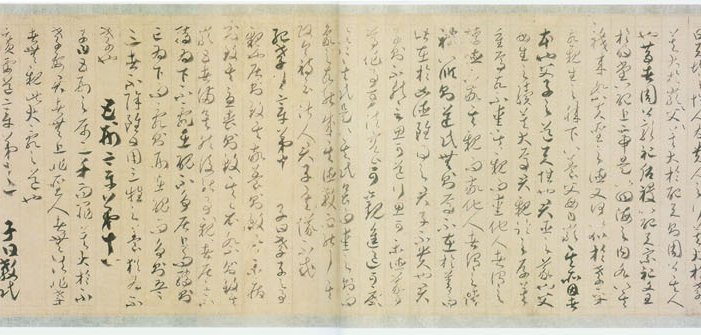 莫大於嚴父嚴父莫大於配天則周公其人
也昔者周公郊祀后稷以配天宗祀文王
於明堂以配上帝是以四海之內各以其
職來祭夫聖人之德又何以加於孝乎
故親生之膝下以養父母日嚴
本也父子之道天性也君臣之義也父
母生之續莫大焉君親臨之厚莫
重焉故不愛其親而愛他人者謂之
悖德不敬其親而敬他人者謂之悖
禮以順則逆民無則焉不在於善而
皆在於凶德雖得之君子不貴也君
子則不然言思可道行思可樂德義可
尊作事可法容止可觀進退可度
以臨其民是以其民畏而愛之則而
象之故能成其德教而行其政令
淑人君子其儀不忒
紀孝行章第十 子曰孝子之事
親居則致其敬養則致其樂病
則致其憂喪則致其哀祭則致其
嚴五者備矣然後能事親事親者居上不
驕為下不亂在醜不爭居上而驕則
亡為下而亂則刑在醜而爭則兵
三者不除雖日用三牲之養猶為不
孝也
五刑章第十一
子曰五刑之屬三千而罪莫大於不
孝要君者無上非聖人者無法非孝
者無親此大亂之道也
廣要道章第十二 子曰教民